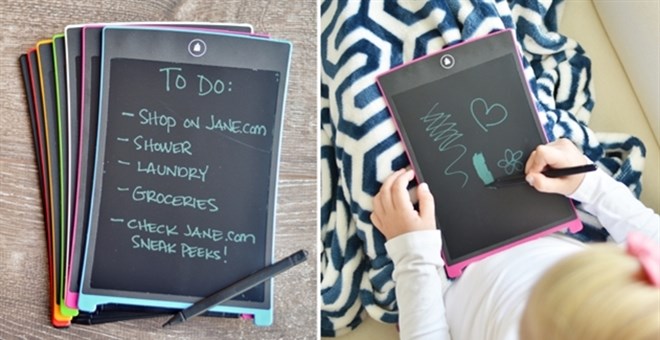 TO DO:
- SHOP ON JANE.com
- SHOWER
- LAUNDRY
- GROCERIES
- CHECK JANE.com
SNEAK PEEKS!